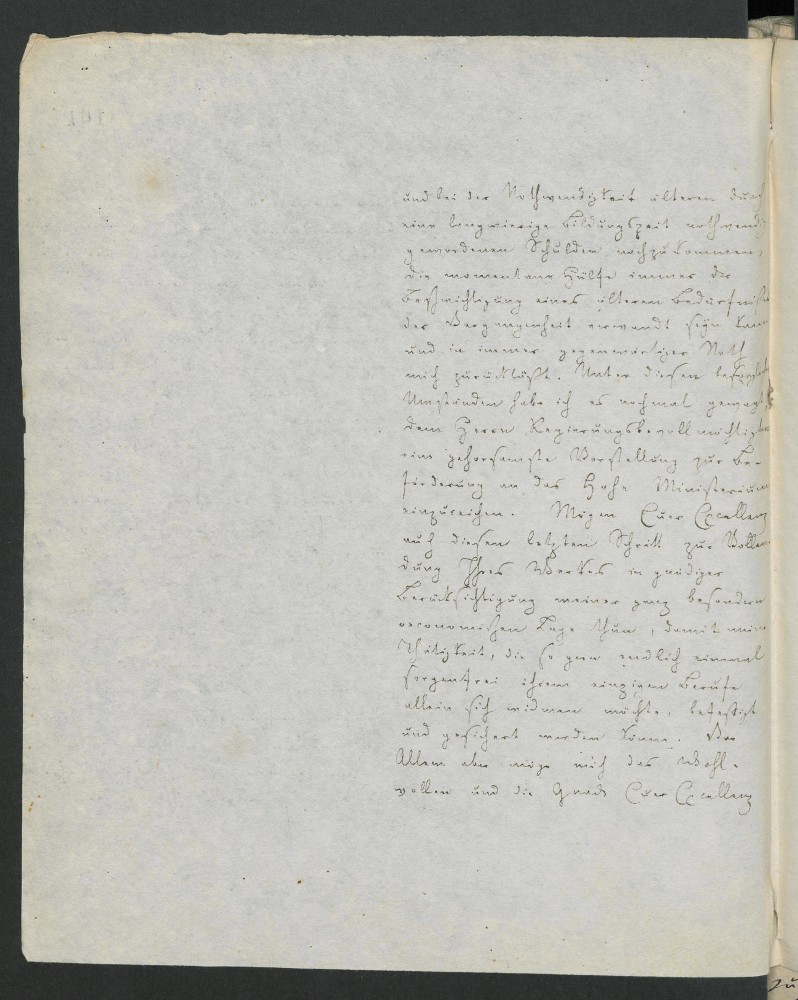 und bei der Nothwendigkeit älteren durch
eine langwierige Bildungszeit nothwendig
gewordenen Schulden nachzukommen,
die momentane Hülfe immer der
Beschwichtigung eines älteren Bedürfnißes
der Vergangenheit verwandt seyn kann
und in immer gegenwärtiger Noth
mich zurückläßt. Unter diesen
Umständen habe ich es nochmal gewagt,
dem Herrn Regierungsbevollmächtigten
eine gehorsamste Vorstellung zur Be-
förderung an das Hohe Ministerium
einzureichen. Mögen Euer Excellenz
auch diesen letzten Schritt zur Vollen-
dung Ihres Werkes in gnädiger
Berücksichtigung meiner ganz besondern
oeconomischen Lage thun, damit meine
Thätigkeit, die so gern endlich einmal
sorgenfrei ihrem einzigen Berufe
allein sich widmen möchte, befestigt
und gesichert werden könne. Vor
Allem aber möge mich das Wohl-
wollen und die Gnade Euer Excellenz